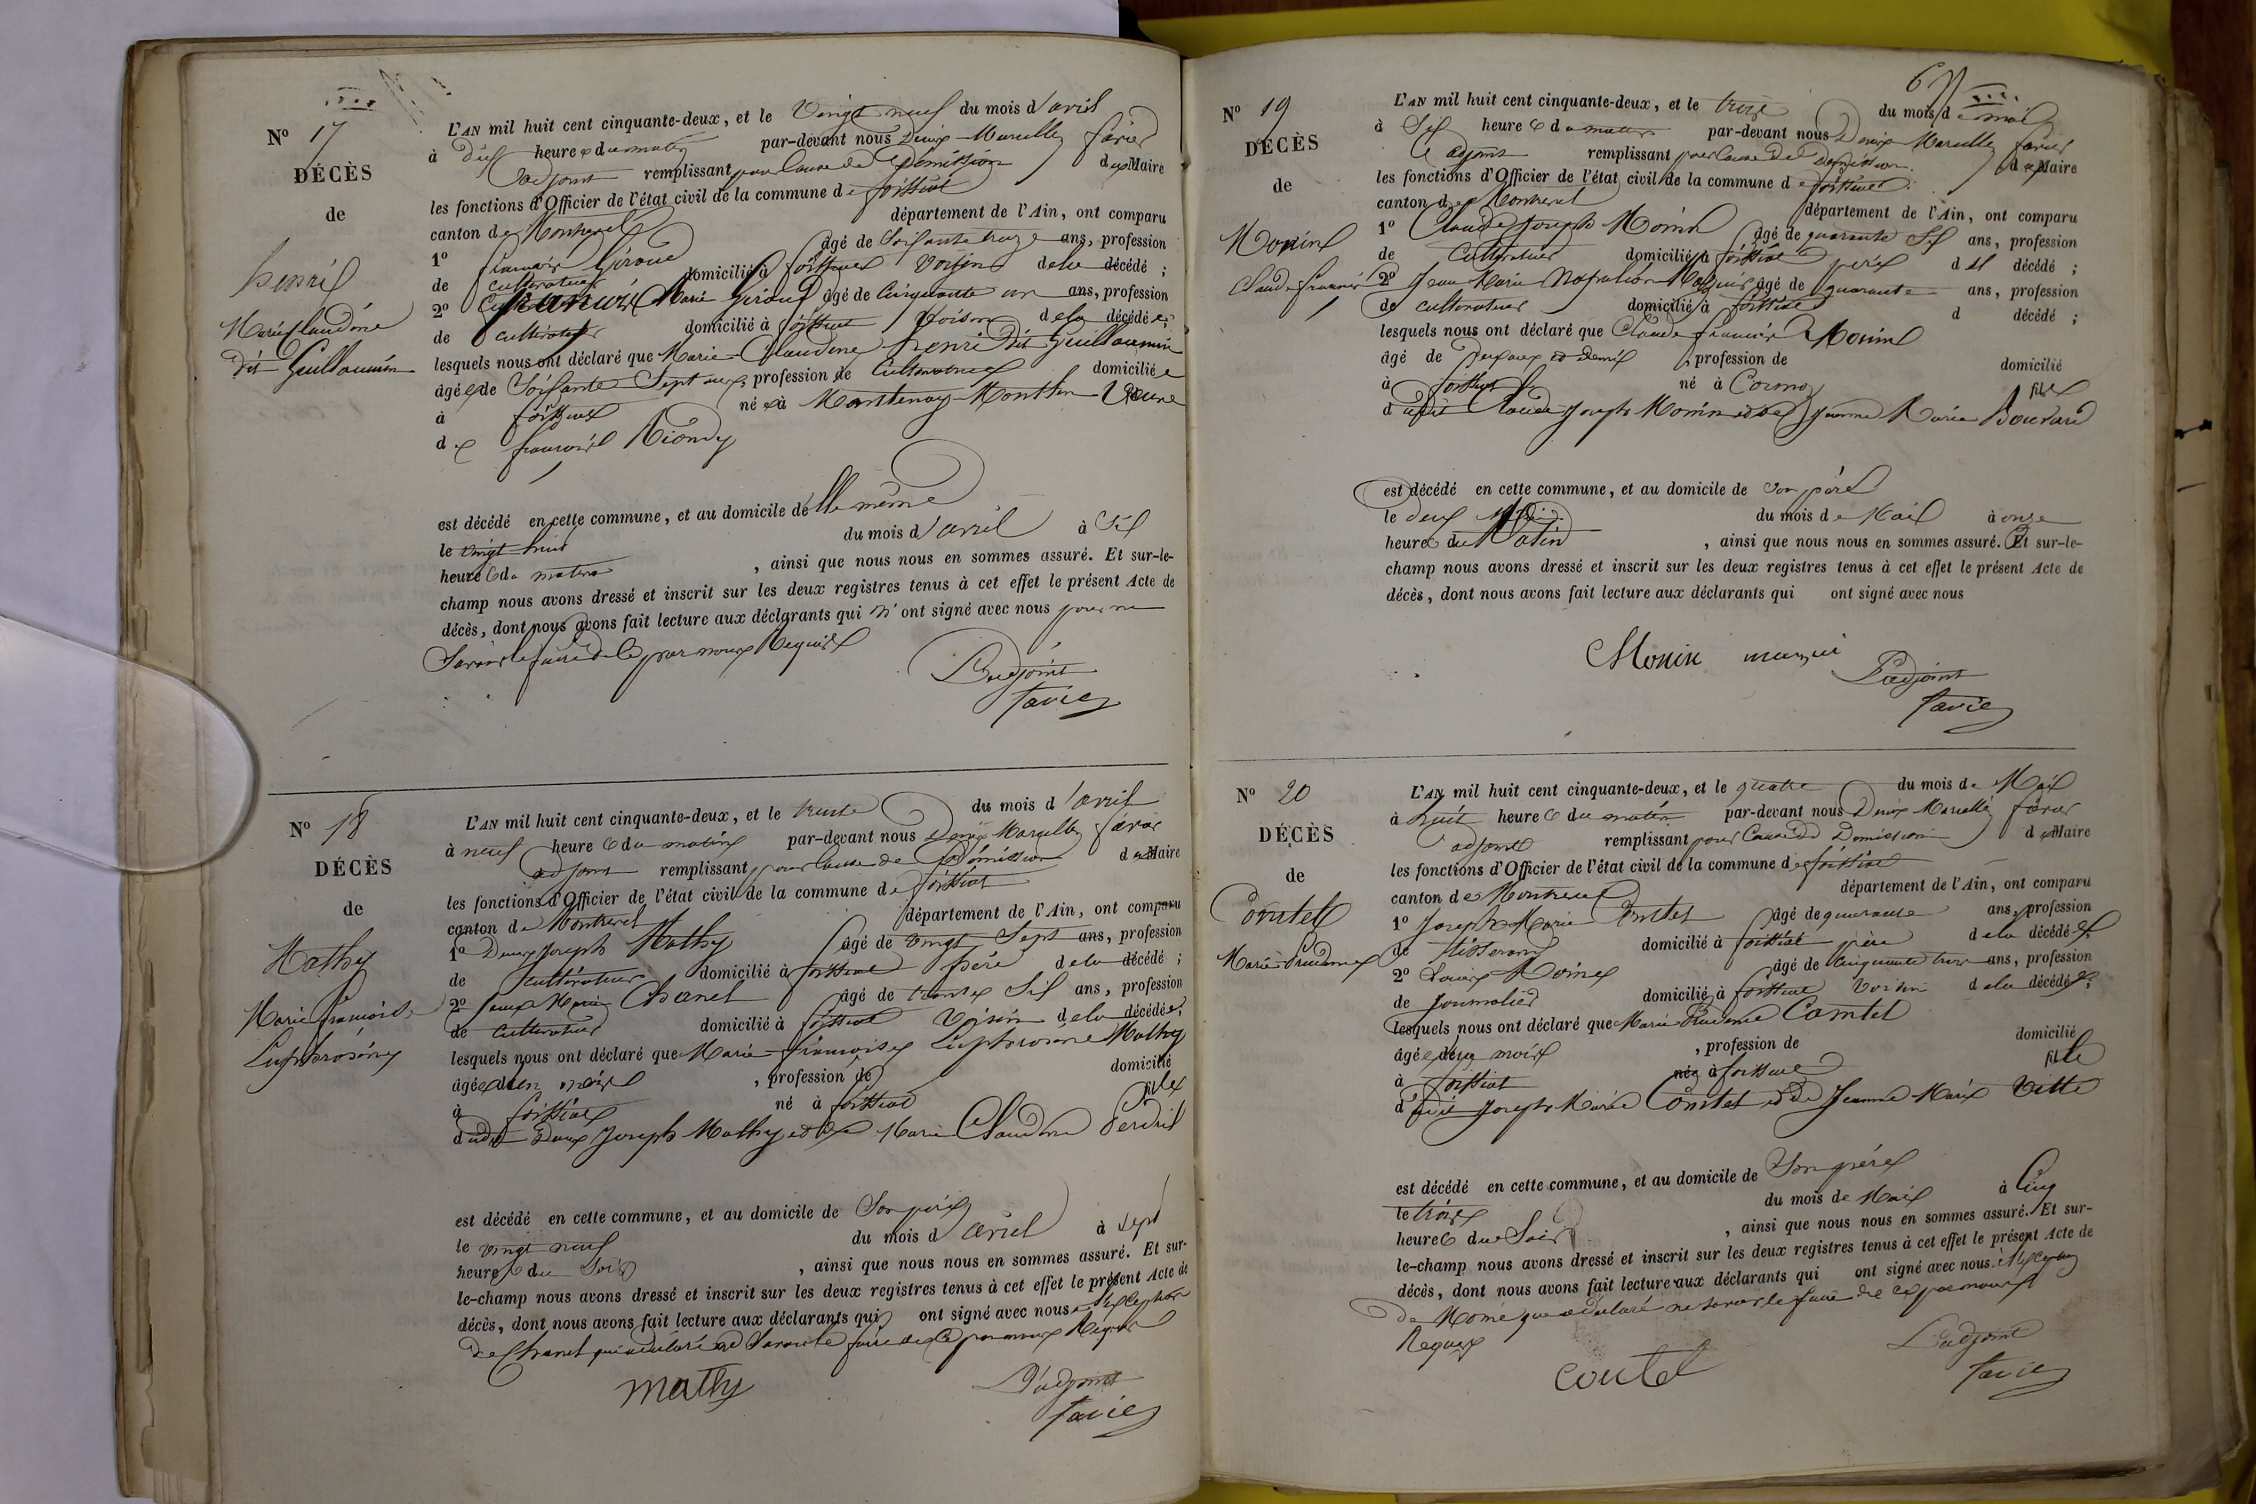 N° 17
DÉCÈS
de
henri
Marie Claudine
dit Guillaumin
L'AN mil huit cent cinquante-deux, et le vingt neuf du mois d'avril
à dix heure du matin par-devant nous Denis Marcelly favier
adjoint remplissant pour cause de démission du Maire
les fonctions d'Officier de l'état civil de la commune de foissiat
canton de Montrevel département de l'Ain, ont comparu
1° françois Giroud âgé de soixante treize ans, profession
de cultivateur domicilié à foissiat voisin de la décédé ;
2° Marie Giroud âgé de cinquante un ans, profession
de cultivateur domicilié à foissiat voisin de la décédée ;
lesquels nous ont déclaré que Marie Claudine henri dit Guillaumin
âgée de soixante sept ans, profession de cultivatrice domiciliée
à foissiat née à Mantenay Montlin veuve
de françois Riondy
est décédé en cette commune, et au domicile d'elle même
le vingt huit du mois d'avril à six
heure du matin , ainsi que nous nous en sommes assuré. Et sur-le-
champ nous avons dressé et inscrit sur les deux registres tenus à cet effet le présent Acte de
décès, dont nous avons fait lecture aux déclarants qui n'ont signé avec nous pour ne
savoir le faire de ce par nous requis
L'adjoint
favier
N° 18
DÉCÈS
de
Mathy
Marie françoise
Euphrosine
L'AN mil huit cent cinquante-deux, et le trente du mois d'avril
à neuf heure du matin par-devant nous Denis Marcelly favier
adjoint remplissant pour cause de démission du Maire
les fonctions d'Officier de l'état civil de la commune de foissiat
canton de Montrevel département de l'Ain, ont comparu
1° Joseph Mathy âgé de vingt sept ans, profession
de cultivateur domicilié à foissiat père de la décédé ;
2° Marie Chanel âgé de trente six ans, profession
de cultivateur domicilié à foissiat voisin de la décédée ;
lesquels nous ont déclaré que Marie françoise Euphrosine Mathy
âgée d'un mois , profession de domicilié
à foissiat né à foissiat fille
dudit Joseph Mathy et de Marie Claudine Perdrix
est décédé en cette commune, et au domicile de son père
le vingt neuf du mois d'avril à sept
heure du soir , ainsi que nous nous en sommes assuré. Et sur-
le-champ nous avons dressé et inscrit sur les deux registres tenus à cet effet le présent Acte de
décès, dont nous avons fait lecture aux déclarants qui ont signé avec nous à l'exception
de Chanel qui a déclaré ne savoir le faire de ce par nous requis
mathy
L'adjoint
favier
67
N° 19
DÉCÈS
de
Monin
Claude françois
L'AN mil huit cent cinquante-deux, et le trois du mois de mai
à six heure du matin par-devant nous Denis Marcelly favier
adjoint remplissant pour cause de démission du Maire
les fonctions d'Officier de l'état civil de la commune de foissiat
canton de Montrevel département de l'Ain, ont comparu
1° Claude Joseph Monin âgé de quarante six ans, profession
de cultivateur domicilié à foissiat père du décédé ;
2° Jean Marie Napoléon âgé de quarante ans, profession
de cultivateur domicilié à foissiat d décédé ;
lesquels nous ont déclaré que Claude françois Monin
âgé de deux ans et demi , profession de domicilié
à foissiat né à Cormoz fils
dudit Claude Joseph Monin et de Jeanne Marie Bouvard
est décédé en cette commune, et au domicile de son père
le deux du mois de Mai à onze
heure du Matin , ainsi que nous nous en sommes assuré. Et sur-le-
champ nous avons dressé et inscrit sur les deux registres tenus à cet effet le présent Acte de
décès, dont nous avons fait lecture aux déclarants qui ont signé avec nous
Monin
L'adjoint
favier
N° 20
DÉCÈS
de
Comtet
Marie Prudence
L'AN mil huit cent cinquante-deux, et le quatre du mois de Mai
à huit heure du matin par-devant nous Denis Marcelly favier
adjoint remplissant pour cause de Démission du Maire
les fonctions d'Officier de l'état civil de la commune de foissiat
canton de Montrevel département de l'Ain, ont comparu
1° Joseph Marie Comtet âgé de quarante ans, profession
de tisserand domicilié à foissiat père de la décédée ;
2° Louis Moine âgé de cinquante trois ans, profession
de journalier domicilié à foissiat voisin de la décédée ;
lesquels nous ont déclaré que Marie Prudence Comtet
âgée mois , profession de domicilié
à foissiat née à foissiat fille
dudit Joseph Marie Comtet et de Jeanne Marie Vitte
est décédé en cette commune, et au domicile de son père
le trois du mois de Mai à cinq
heure du soir , ainsi que nous nous en sommes assuré. Et sur-
le-champ nous avons dressé et inscrit sur les deux registres tenus à cet effet le présent Acte de
décès, dont nous avons fait lecture aux déclarants qui ont signé avec nous à l'exception
de Moine qui a déclaré ne savoir le faire de ce par nous
Requis
coutet
L'adjoint
favier